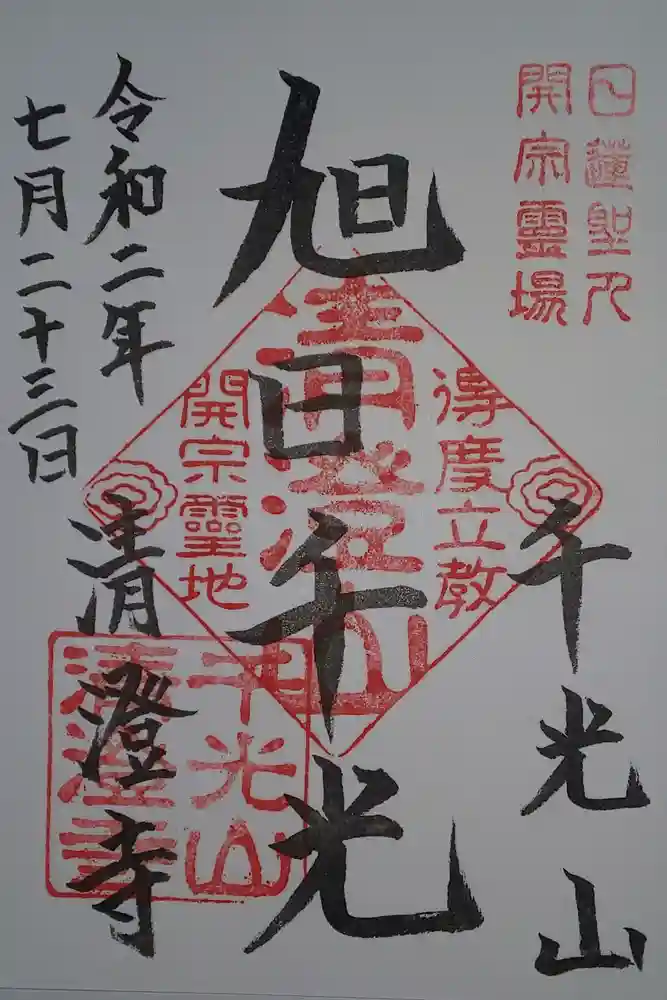 日蓮聖人
開宗霊場
千光山
旭日千光
得度立教
清澄山
開宗靈地
令和二年
七月二十三日
清澄寺
千光山
清澄寺